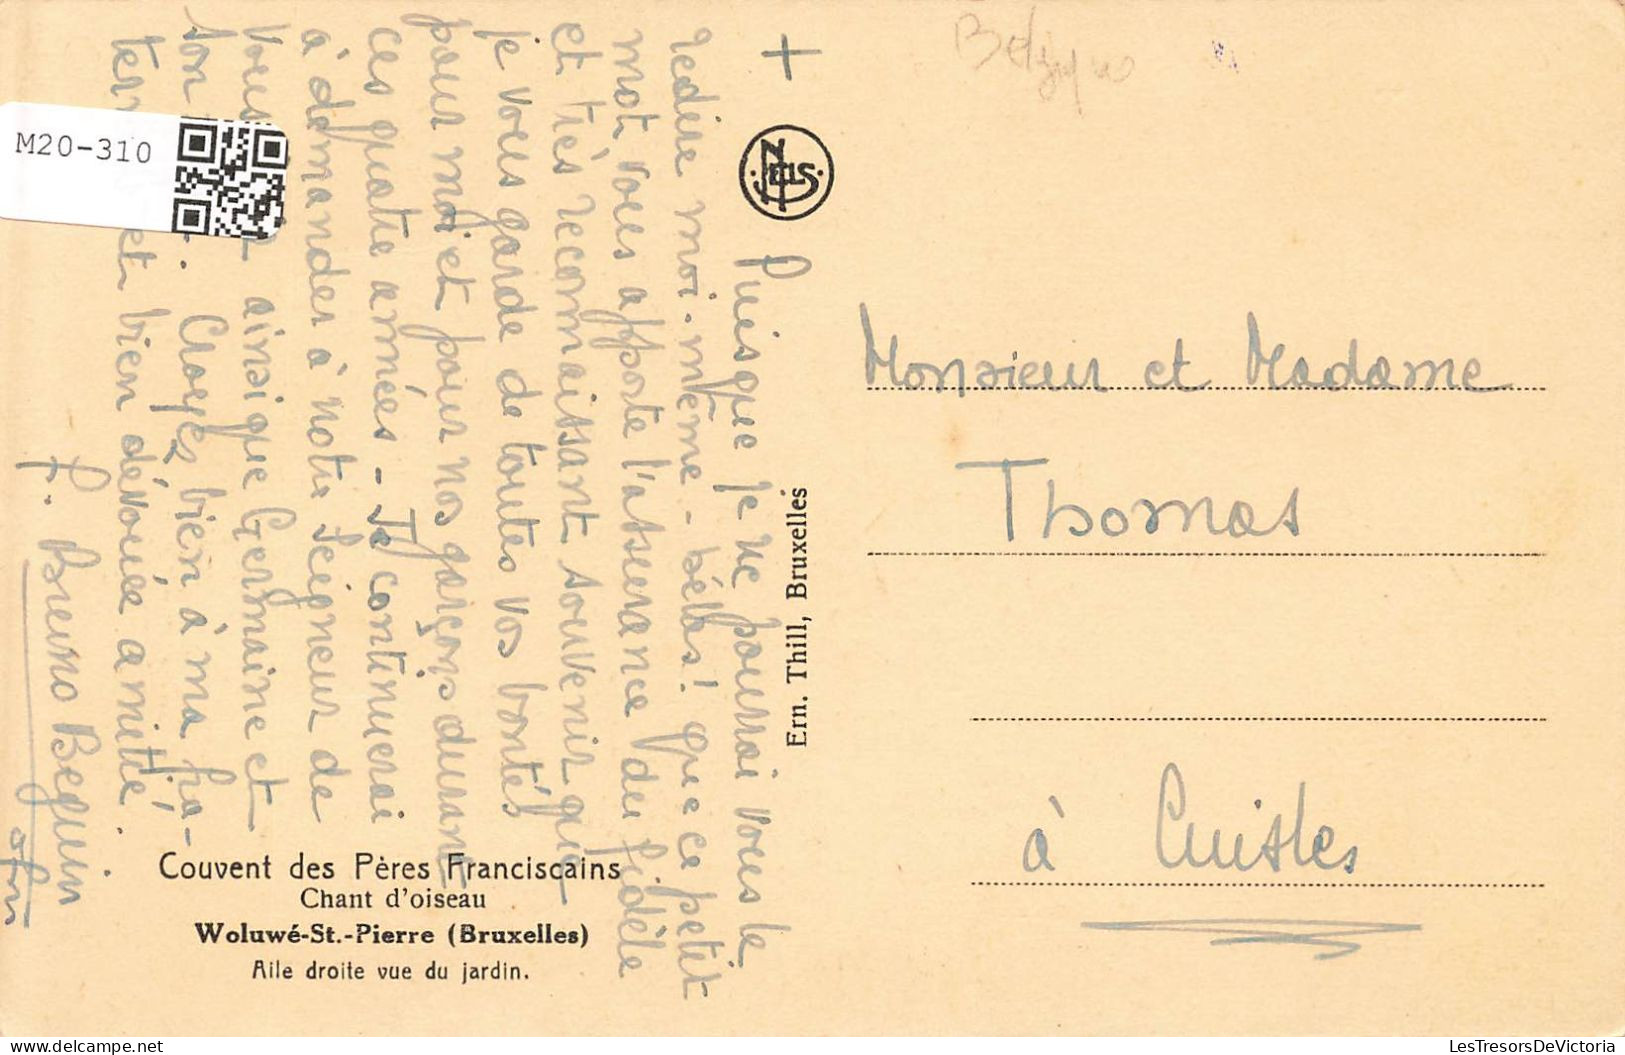 Belgique
M20-310
+
NELS
Puisque je ne pourrai vous le
redire moi-même - hélas! que ce petit
mot vous apporte l'assurance du fidèle
et très reconnaissant souvenir que
je vous garde de toutes vos bontés
pour moi et pour nos garçons durant
ces quatre années - Je continuerai
à demander à notre Seigneur de
vous ainsi que Germaine et
son Croyés bien à ma fra-
ter et bien dévouée amitié.
f. Bruno Beguin
ofm
Ern. Thill, Bruxelles
Couvent des Pères Franciscains
Chant d'oiseau
Woluwé-St.-Pierre (Bruxelles)
Aile droite vue du jardin.
Monsieur et Madame
Thomas
à Cuisles
LesTresorsDeVictoria.com